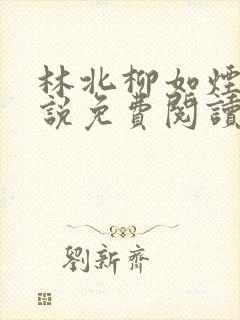 林北柳如煙
說免費閱讀
劉新齊